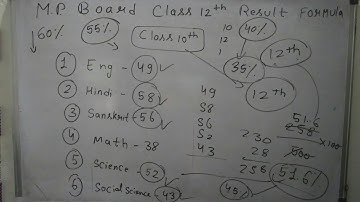 M.P. Board Class 12th Result Formula
↓60% 55% Class 10th 10 12 1 40% 35% 12th
1 Eng - 49
2 Hindi - 58
3 Sanskrit - 56
4 Math - 38
5 Science - 52
6 Social science - 43
49
58
56
52
43
230
28
258
12th
51.6
258 × 100
500
51.6%
45%